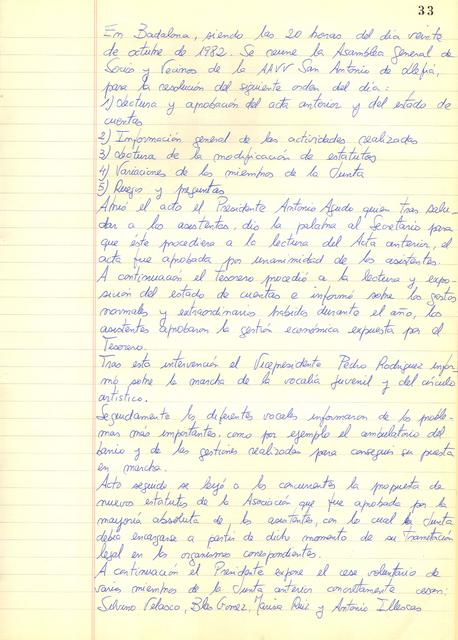 33
En Badalona, siendo las 20 horas del dia veinte
de octubre de 1982. Se reune la Asamblea General de
Socios y Vecinos de la AAVV San Antonio de Llefià,
para la resolución del siguiente orden del dia:
1) Lectura y aprobación del acta anterior y del estado de
cuentas
2) Información general de las actividades realizadas
3) Lectura de la modificación de estatutos
4) Variaciones de los miembros de la Junta
5) Ruegos y preguntas
Abrió el acto el Presidente Antonio Agudo quien tras salu-
dar a los asistentes, dio la palabra al Secretario para
que éste procediera a la lectura del Acta anterior, el
acta fue aprobada por unanimidad de los asistentes.
A continuación el tesorero procedió a la lectura y expo-
sición del estado de cuentas e informó sobre los gastos
normales y extraordinarios habidos durante el año, los
asistentes aprobaron la gestión económica expuesta por el
Tesorero.
Tras esta intervención el Vicepresidente Pedro Rodriguez infor-
mó sobre la marcha de la vocalia juvenil y del circulo
artistico.
Seguidamente los diferentes vocales informaron de los proble-
mas más importantes, como por ejemplo el ambulatorio del
barrio y de las gestiones realizadas para conseguir su puesta
en marcha.
Acto seguido se leyó a los concurrentes la propuesta de
nuevos estatutos de la Asociación que fue aprobada por la
mayoría absoluta de los asistentes, con lo cual la Junta
debia encargarse a partir de dicho momento de su tramitación
legal en los organismos correspondientes.
A continuación el Presidente expone el cese voluntario de
varios miembros de la Junta anterior concretamente cesan:
Silvino Velasco, Blas Gomez, Marisa Ruiz y Antonio Illescas